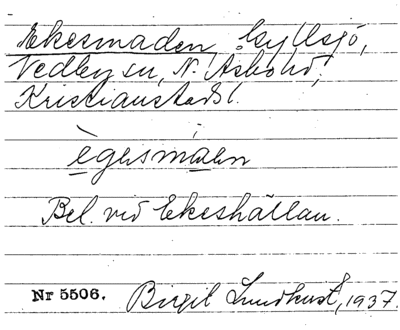 Ekesmaden, Gyllsjö,
Vedby sn, N. Åsbo hd,
Kristianstads l.
ègesmàen
Bel. vid Ekeshällan.
Nr 5506. Birgit Lundkvist, 1937.